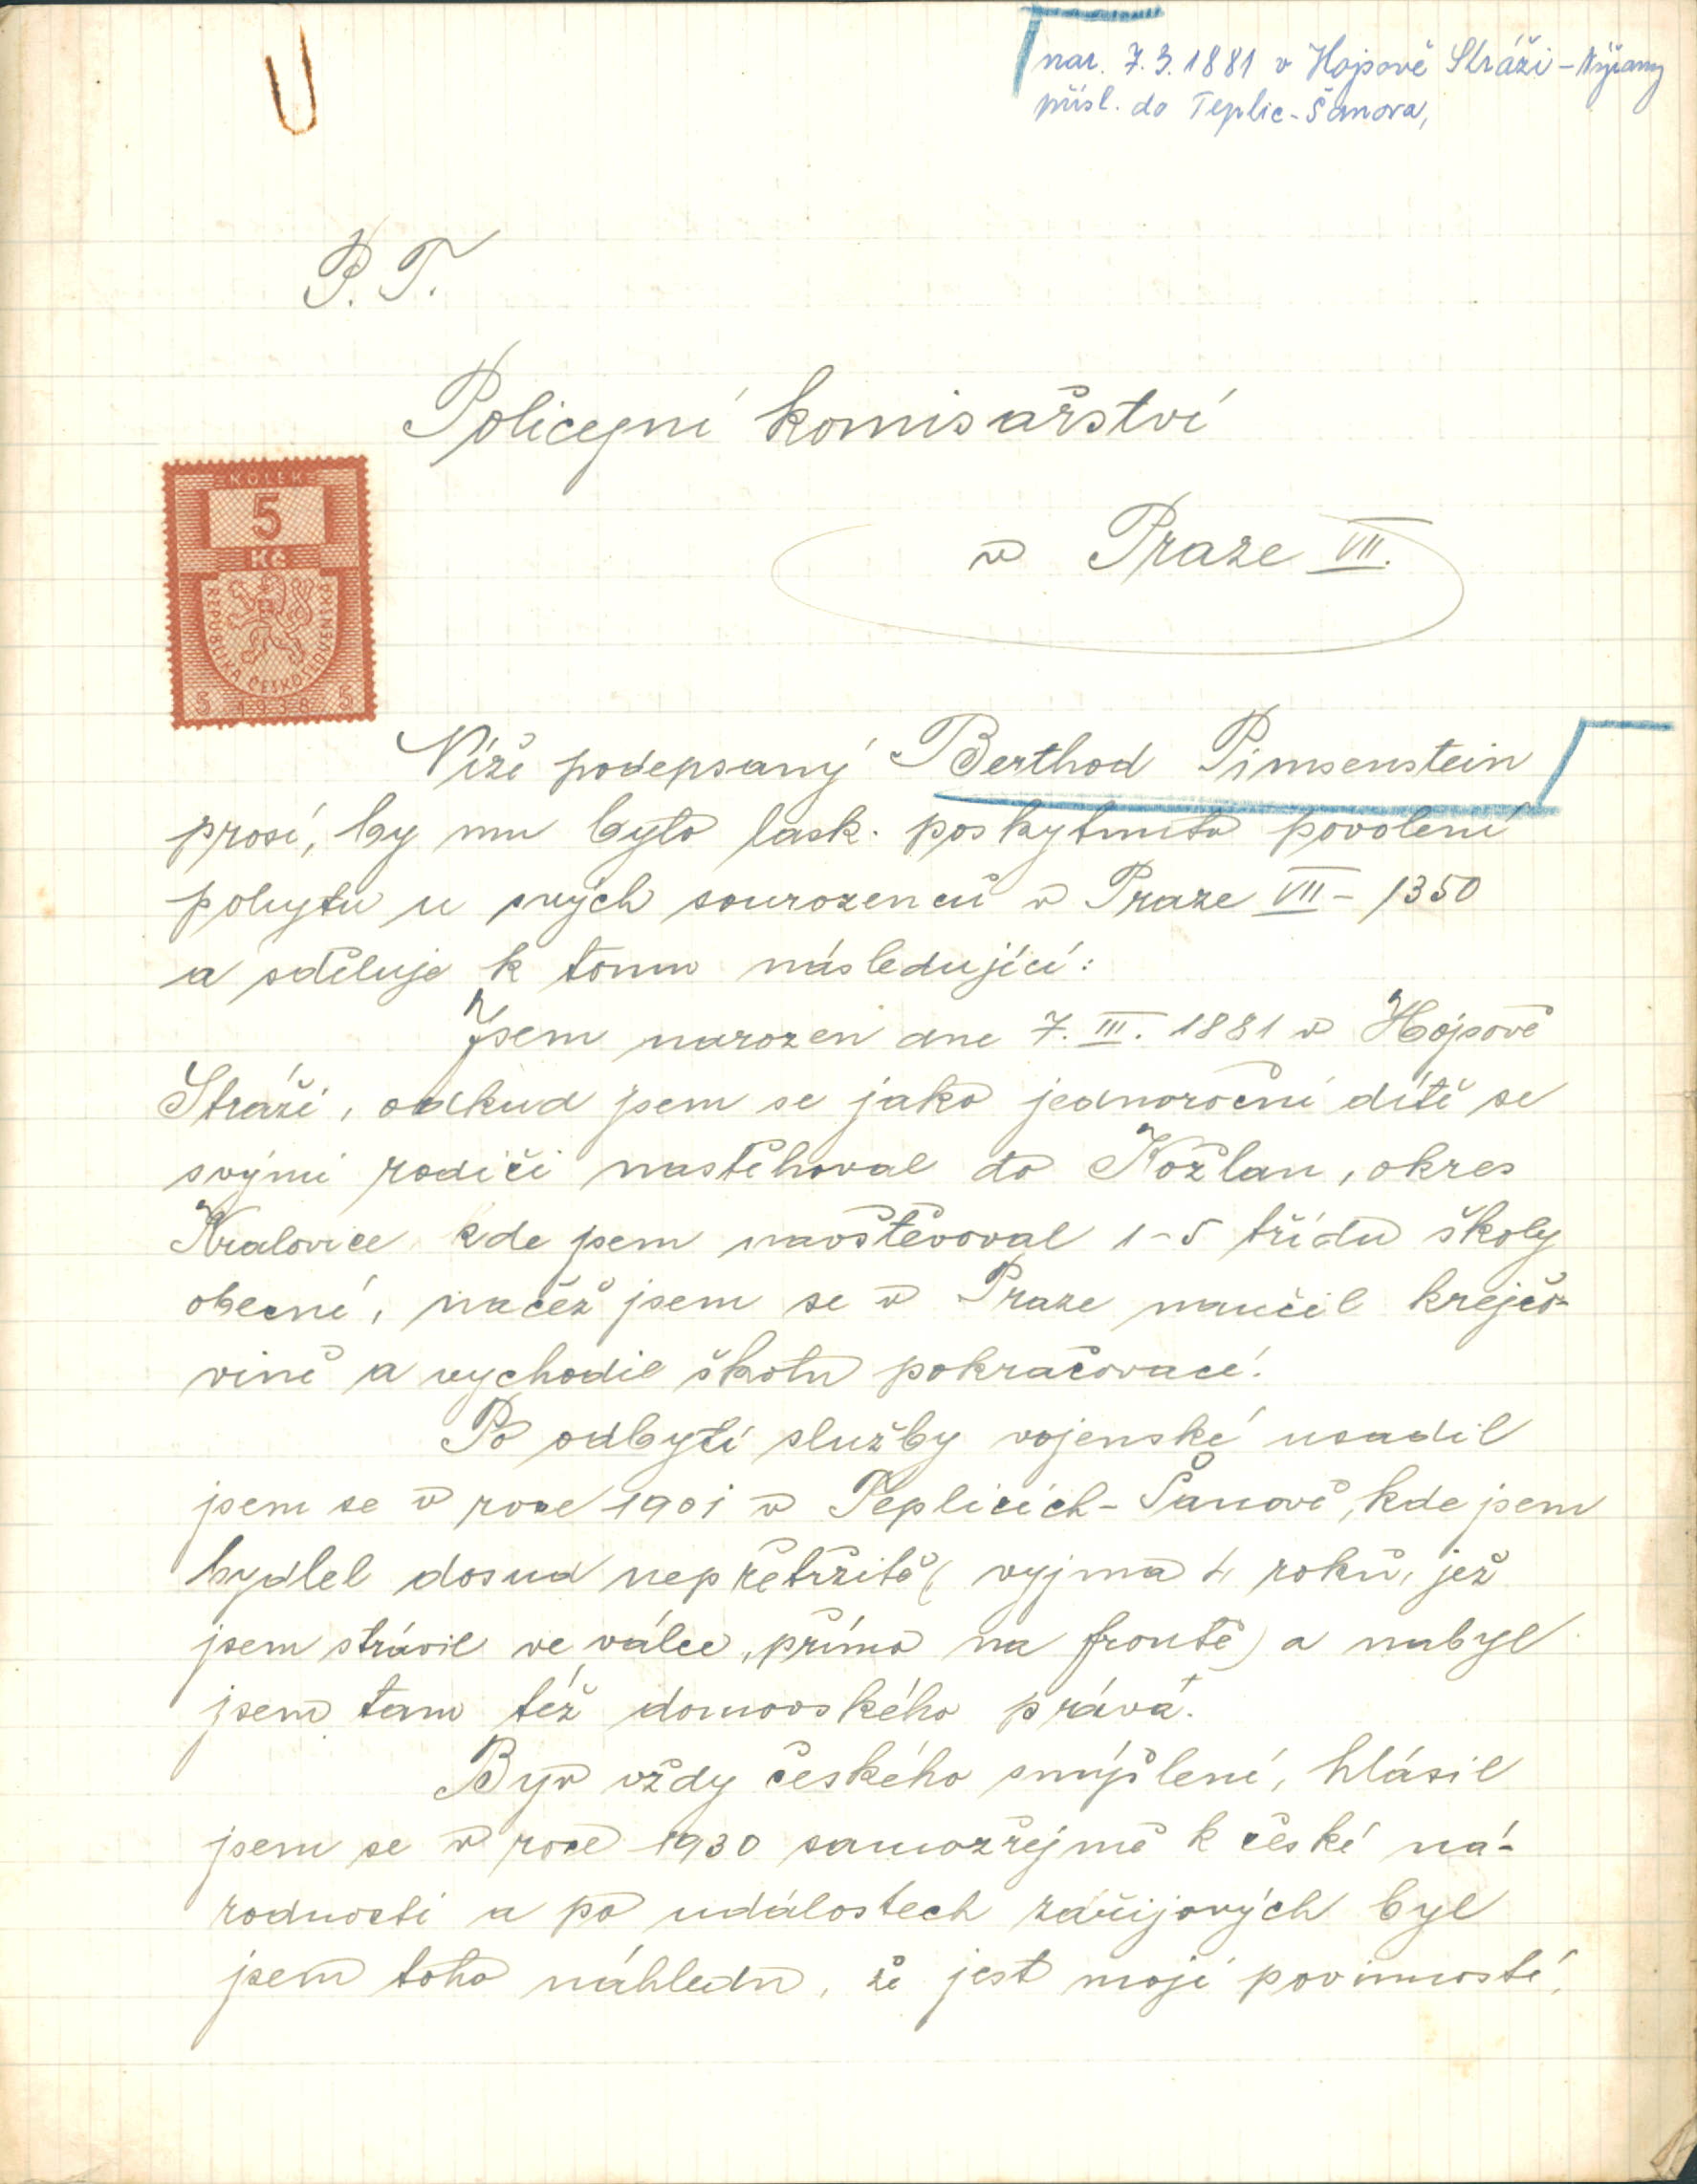 nar. 7.3.1881 v Hojsově Stráži - Nýrany
přísl. do Teplic-Šanova,
P. T.
Policejní komisařství
v Praze VII.
KOLEK
5
Kč
REPUBLIKA ČESKOSLOVENSKÁ
5 1938 5
Níže podepsaný Berthod Pimsenstein
prosí, by mu bylo lask. poskytnuto povolení
pobytu u svých sourozenců v Praze VII - 1350
a sděluje k tomu následující:
Jsem narozen dne 7. III. 1881 v Hojsově
Stráži, odkud jsem se jako jednoroční dítě se
svými rodiči nastěhoval do Kožlan, okres
Kralovice kde jsem navštěvoval 1-5 třídu školy
obecné, načež jsem se v Praze naučil krejčo-
vině a vychodil školu pokračovací.
Po odbytí služby vojenské usadil
jsem se v roce 1901 v Teplicích-Šanově, kde jsem
bydlel dosud nepřetržitě (vyjma 4 roků, jež
jsem strávil ve válce, přímo na frontě) a nabyl
jsem tam též domovského práva.
Byv vždy českého smýšlení, hlásil
jsem se v roce 1930 samozřejmě k české ná-
rodnosti a po událostech zářijových byl
jsem toho náhledu, že jest mojí povinností,